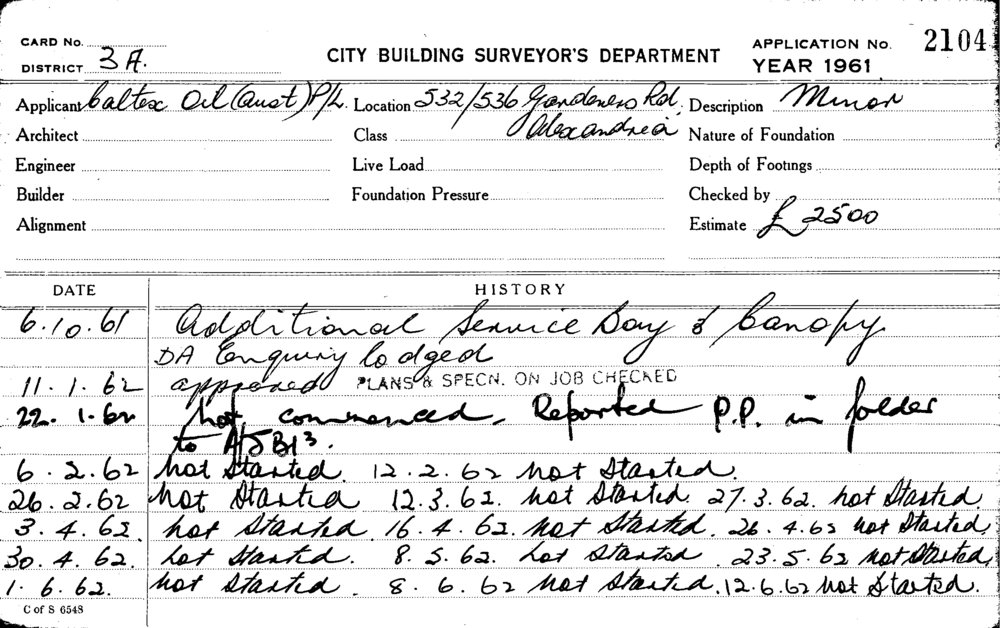 CARD No.
DISTRICT 3A.
CITY BUILDING SURVEYOR'S DEPARTMENT
APPLICATION No. 2104
YEAR 1961
Applicant Caltex Oil (Aust) P/L. Location 532/536 Gardeners Rd. Description Minor
Alexandria
Architect Class Nature of Foundation
Engineer Live Load Depth of Footings
Builder Foundation Pressure Checked by
Alignment Estimate £2500
DATE HISTORY
6.10.61 Additional Service Bay & Canopy
DA Enquiry lodged
11.1.62 approved PLANS & SPECN. ON JOB CHECKED
22.1.62 Not commenced. Reported P.P. in folder
to
6.2.62 Not Started. 12.2.62 Not Started.
26.2.62 Not Started 12.3.62. Not Started. 27.3.62. Not Started.
3.4.62. Not Started. 16.4.62. Not Started. 26.4.62 Not Started.
30.4.62. Not Started. 8.5.62. Not Started 23.5.62 Not Started.
1.6.62. Not Started. 8.6.62 Not Started. 12.6.62 Not Started.
C of S 6548